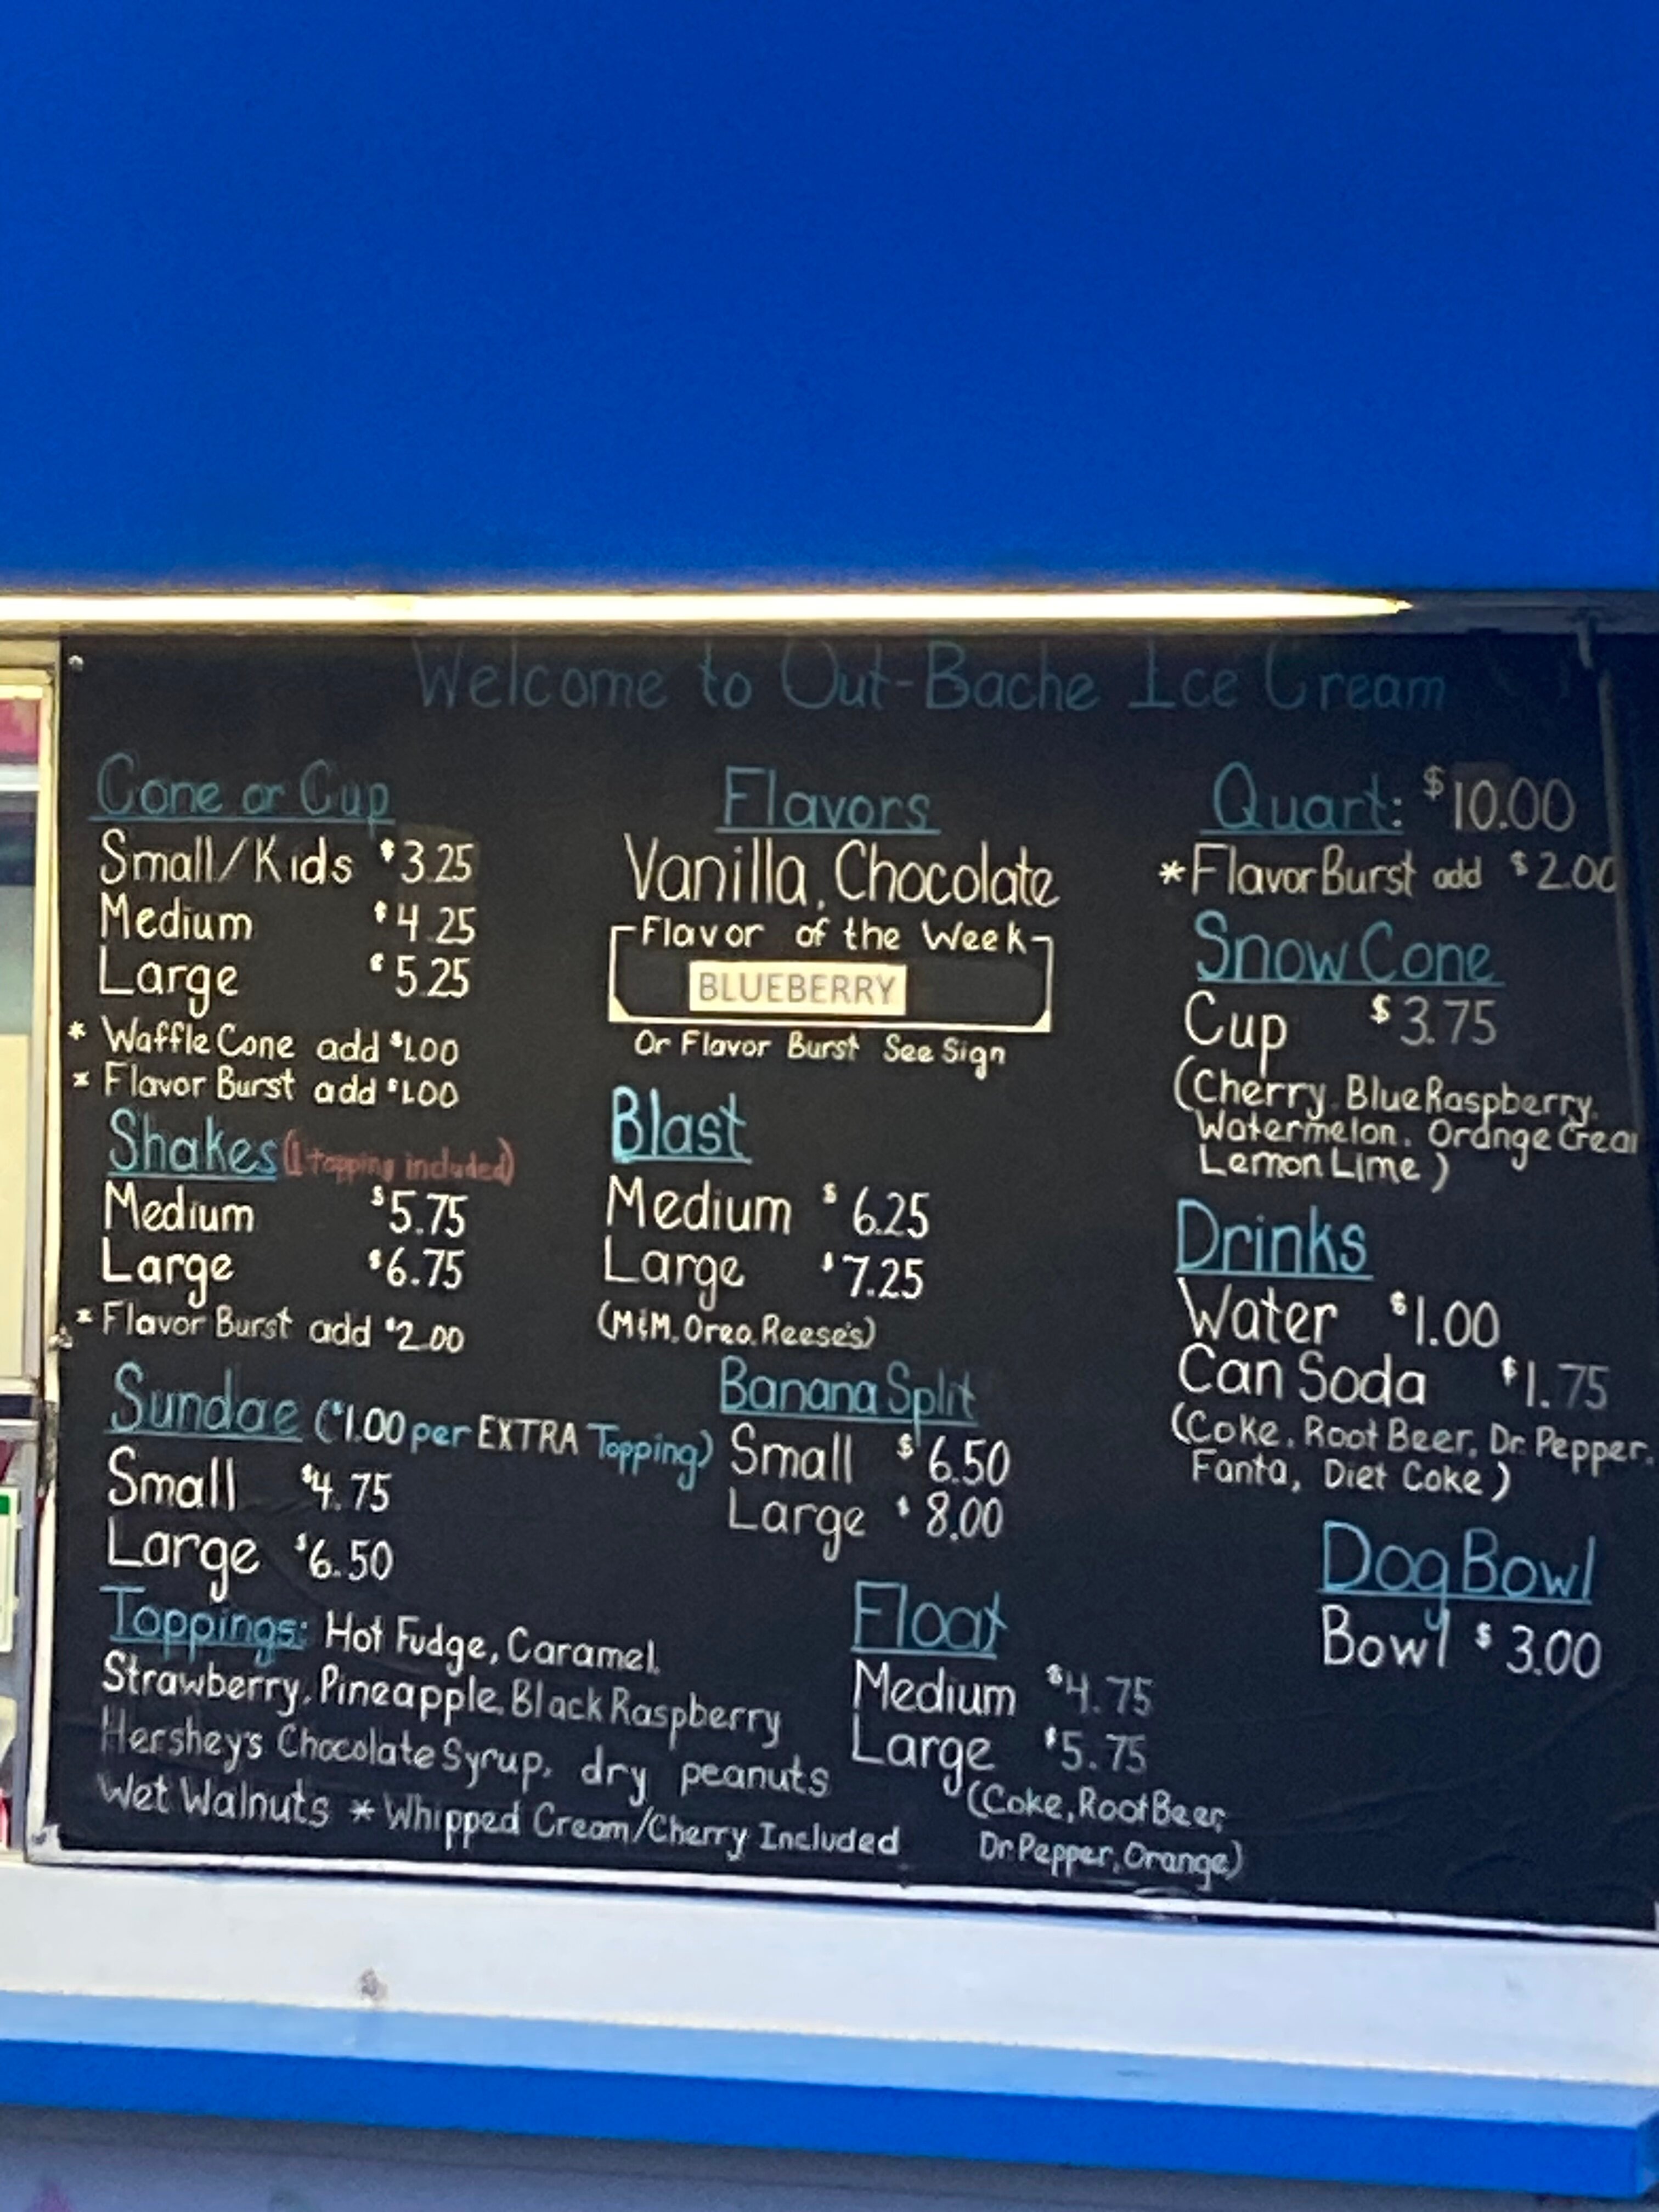 Welcome to Out-Bache Ice Cream
Cone or Cup
Small/Kids $3.25
Medium $4.25
Large $5.25
* Waffle Cone add $1.00
* Flavor Burst add $1.00
Shakes (1 topping included)
Medium $5.75
Large $6.75
* Flavor Burst add $2.00
Sundae ($1.00 per EXTRA Topping)
Small $4.75
Large $6.50
Toppings: Hot Fudge, Caramel,
Strawberry, Pineapple, Black Raspberry
Hershey's Chocolate Syrup, dry peanuts
Wet Walnuts * Whipped Cream/Cherry Included
Flavors
Vanilla, Chocolate
Flavor of the Week
BLUEBERRY
Or Flavor Burst See Sign
Blast
Medium $6.25
Large $7.25
(M&M, Oreo, Reese's)
Banana Split
Small $6.50
Large $8.00
Float
Medium $4.75
Large $5.75
(Coke, Root Beer,
Dr Pepper, Orange)
Quart: $10.00
* Flavor Burst add $2.00
Snow Cone
Cup $3.75
(Cherry, Blue Raspberry,
Watermelon, Orange Crea
Lemon Lime)
Drinks
Water $1.00
Can Soda $1.75
(Coke, Root Beer, Dr. Pepper,
Fanta, Diet Coke)
Dog Bowl
Bowl $3.00